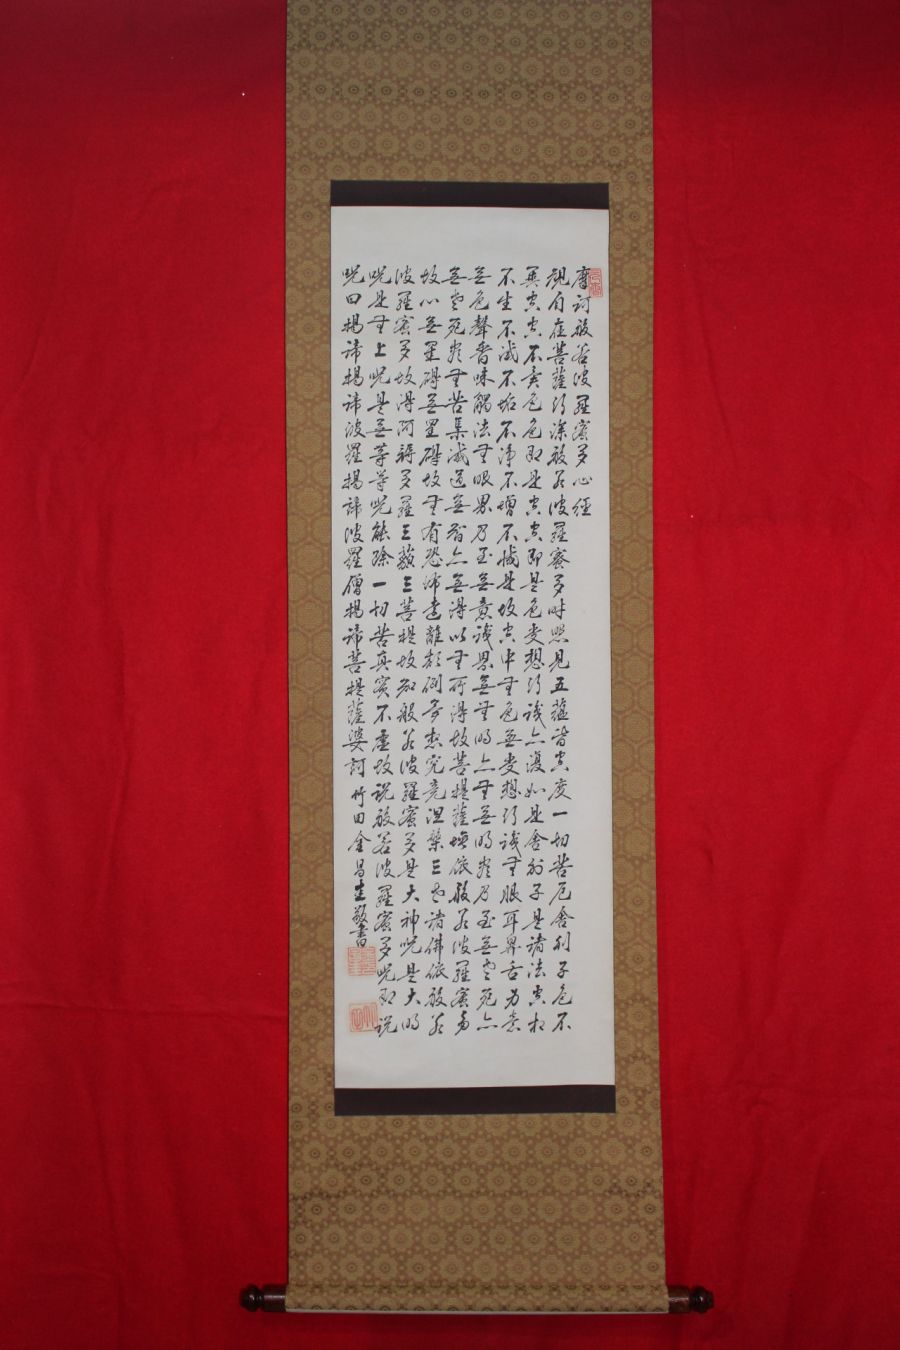 摩訶般若波羅蜜多心経
観自在菩薩行深般若波羅蜜多時照見五蘊皆空度一切苦厄舎利子色不
異空空不異色色即是空空即是色受想行識亦復如是舎利子是諸法空相
不生不滅不垢不浄不増不減是故空中無色無受想行識無眼耳鼻舌身意
無色聲香味觸法無眼界乃至無意識界無無明亦無無明盡乃至無老死亦
無老死盡無苦集滅道無智亦無得以無所得故菩提薩埵依般若波羅蜜多
故心無罣碍無罣碍故無有恐怖遠離顛倒夢想究竟涅槃三世諸佛依般若
波羅蜜多故得阿耨多羅三藐三菩提故知般若波羅蜜多是大神呪是大明
呪是無上呪是無等等呪能除一切苦真實不虚故説般若波羅蜜多呪即説
呪曰揭諦揭諦波羅揭諦波羅僧揭諦菩提薩婆訶 竹田金昌生敬書